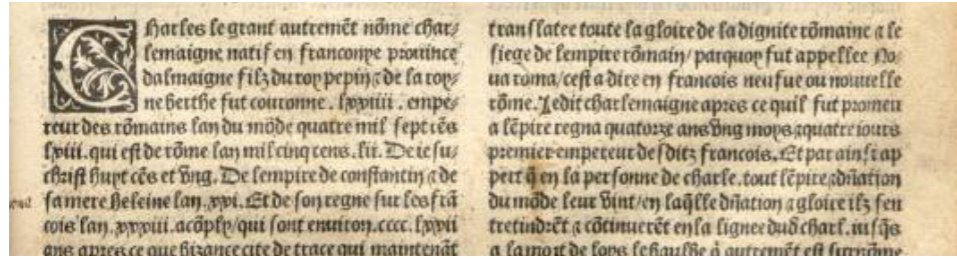 Charles le grant autremēt nōme char⸗
lemaigne natif en franconye prouince
dalmaigne filz du roy pepin ⁊ de la roy⸗
ne berthe fut couronne . lxxiiii . empe⸗
reur des rōmains lan du mōde quatre mil sept cēs
lxiii. qui est de rōme lan mil cinq cens .lii. De iesu⸗
christ huyt cēs et vng. De lempire de constantin ⁊ de
sa mere heleine lan .xvi. Et de son regne sur les frā
cois lan .xxxiii. acōply/qui sont enuiron .cccc. lxxii
ans apres ce que bizance cite de trace qui maintenāt
translatee toute la gloire de la dignite rōmaine ⁊ le
siege de lempire rōmain/parquoy fut appellee No⸗
ua roma/cest a dire en francois neufue ou nouuelle
rōme. Ledit charlemaigne apres ce quil fut promeu
a lēpire regna quatorze ans vng moys ⁊ quatre iours
premier empereur desditz francois. Et par ainsi ap
pert q̄ en la personne de charle. tout lēpire ⁊ dn̄ation
du mōde leur vint/en laq̄lle dn̄ation ⁊ gloire ilz sen
tretindrēt ⁊ cōtinuerēt en la lignee dud̄ charl. iusq̄s
a la mort de loys le